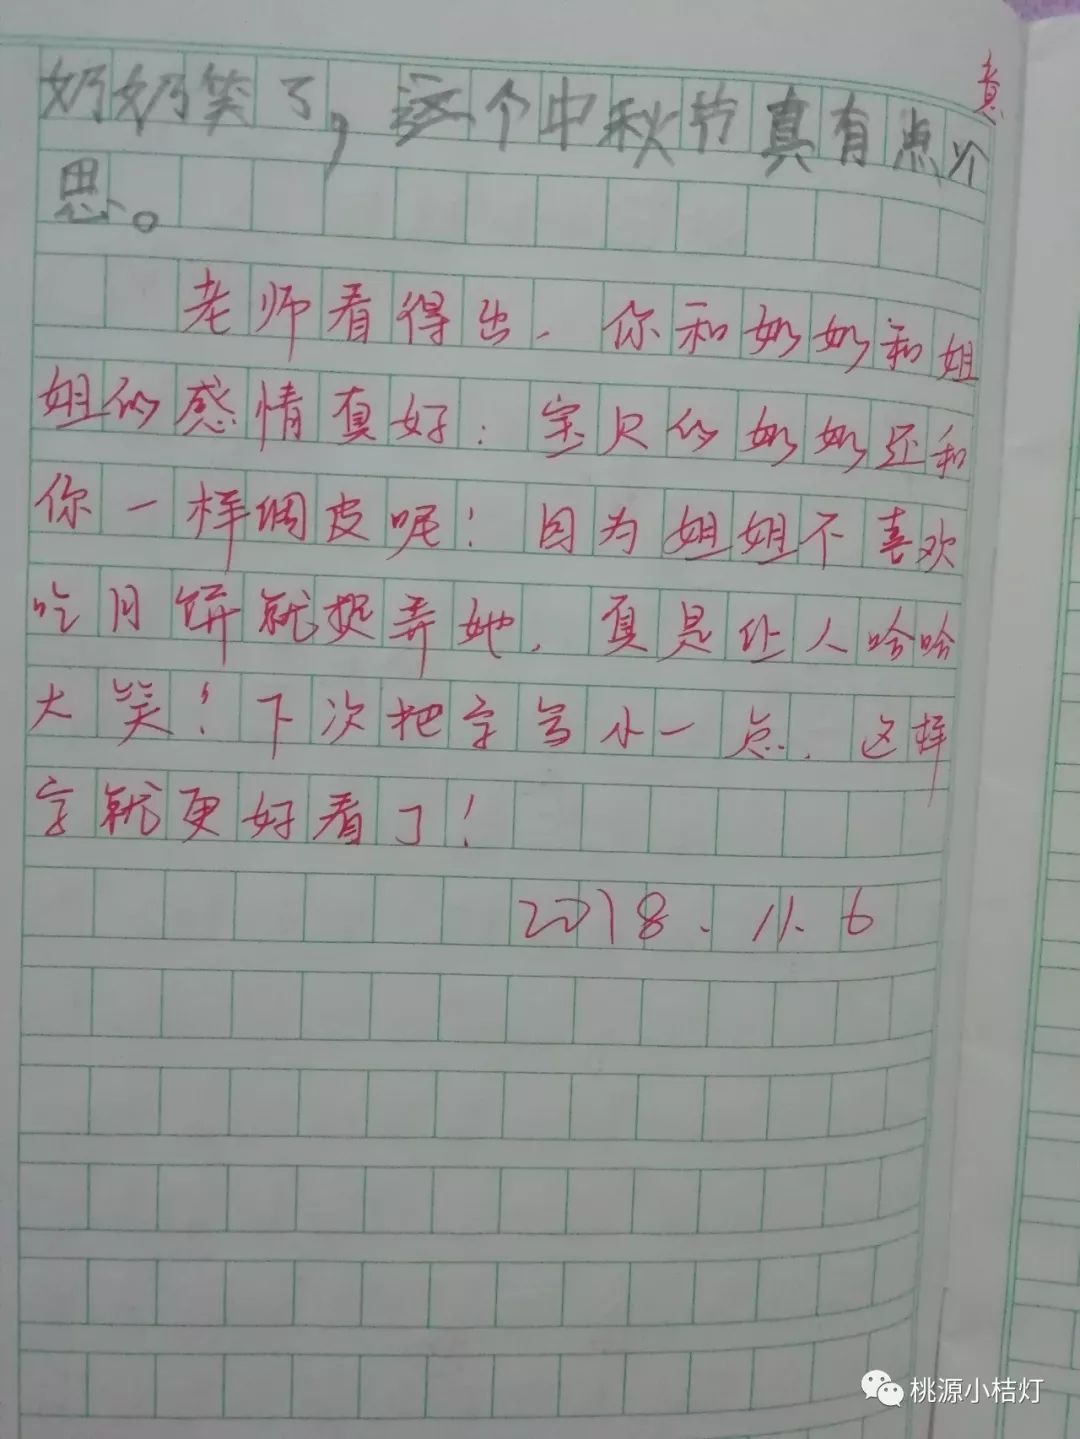 意
奶奶笑了，这个中秋节真有点
思。
老师看得出，你和奶奶和姐
姐的感情真好：宝贝的奶奶还和
你一样调皮呢！因为姐姐不喜欢
吃月饼就捉弄她，真是让人哈哈
大笑！下次把字写小一点，这样
字就更好看了！
2018.11.6
桃源小桔灯